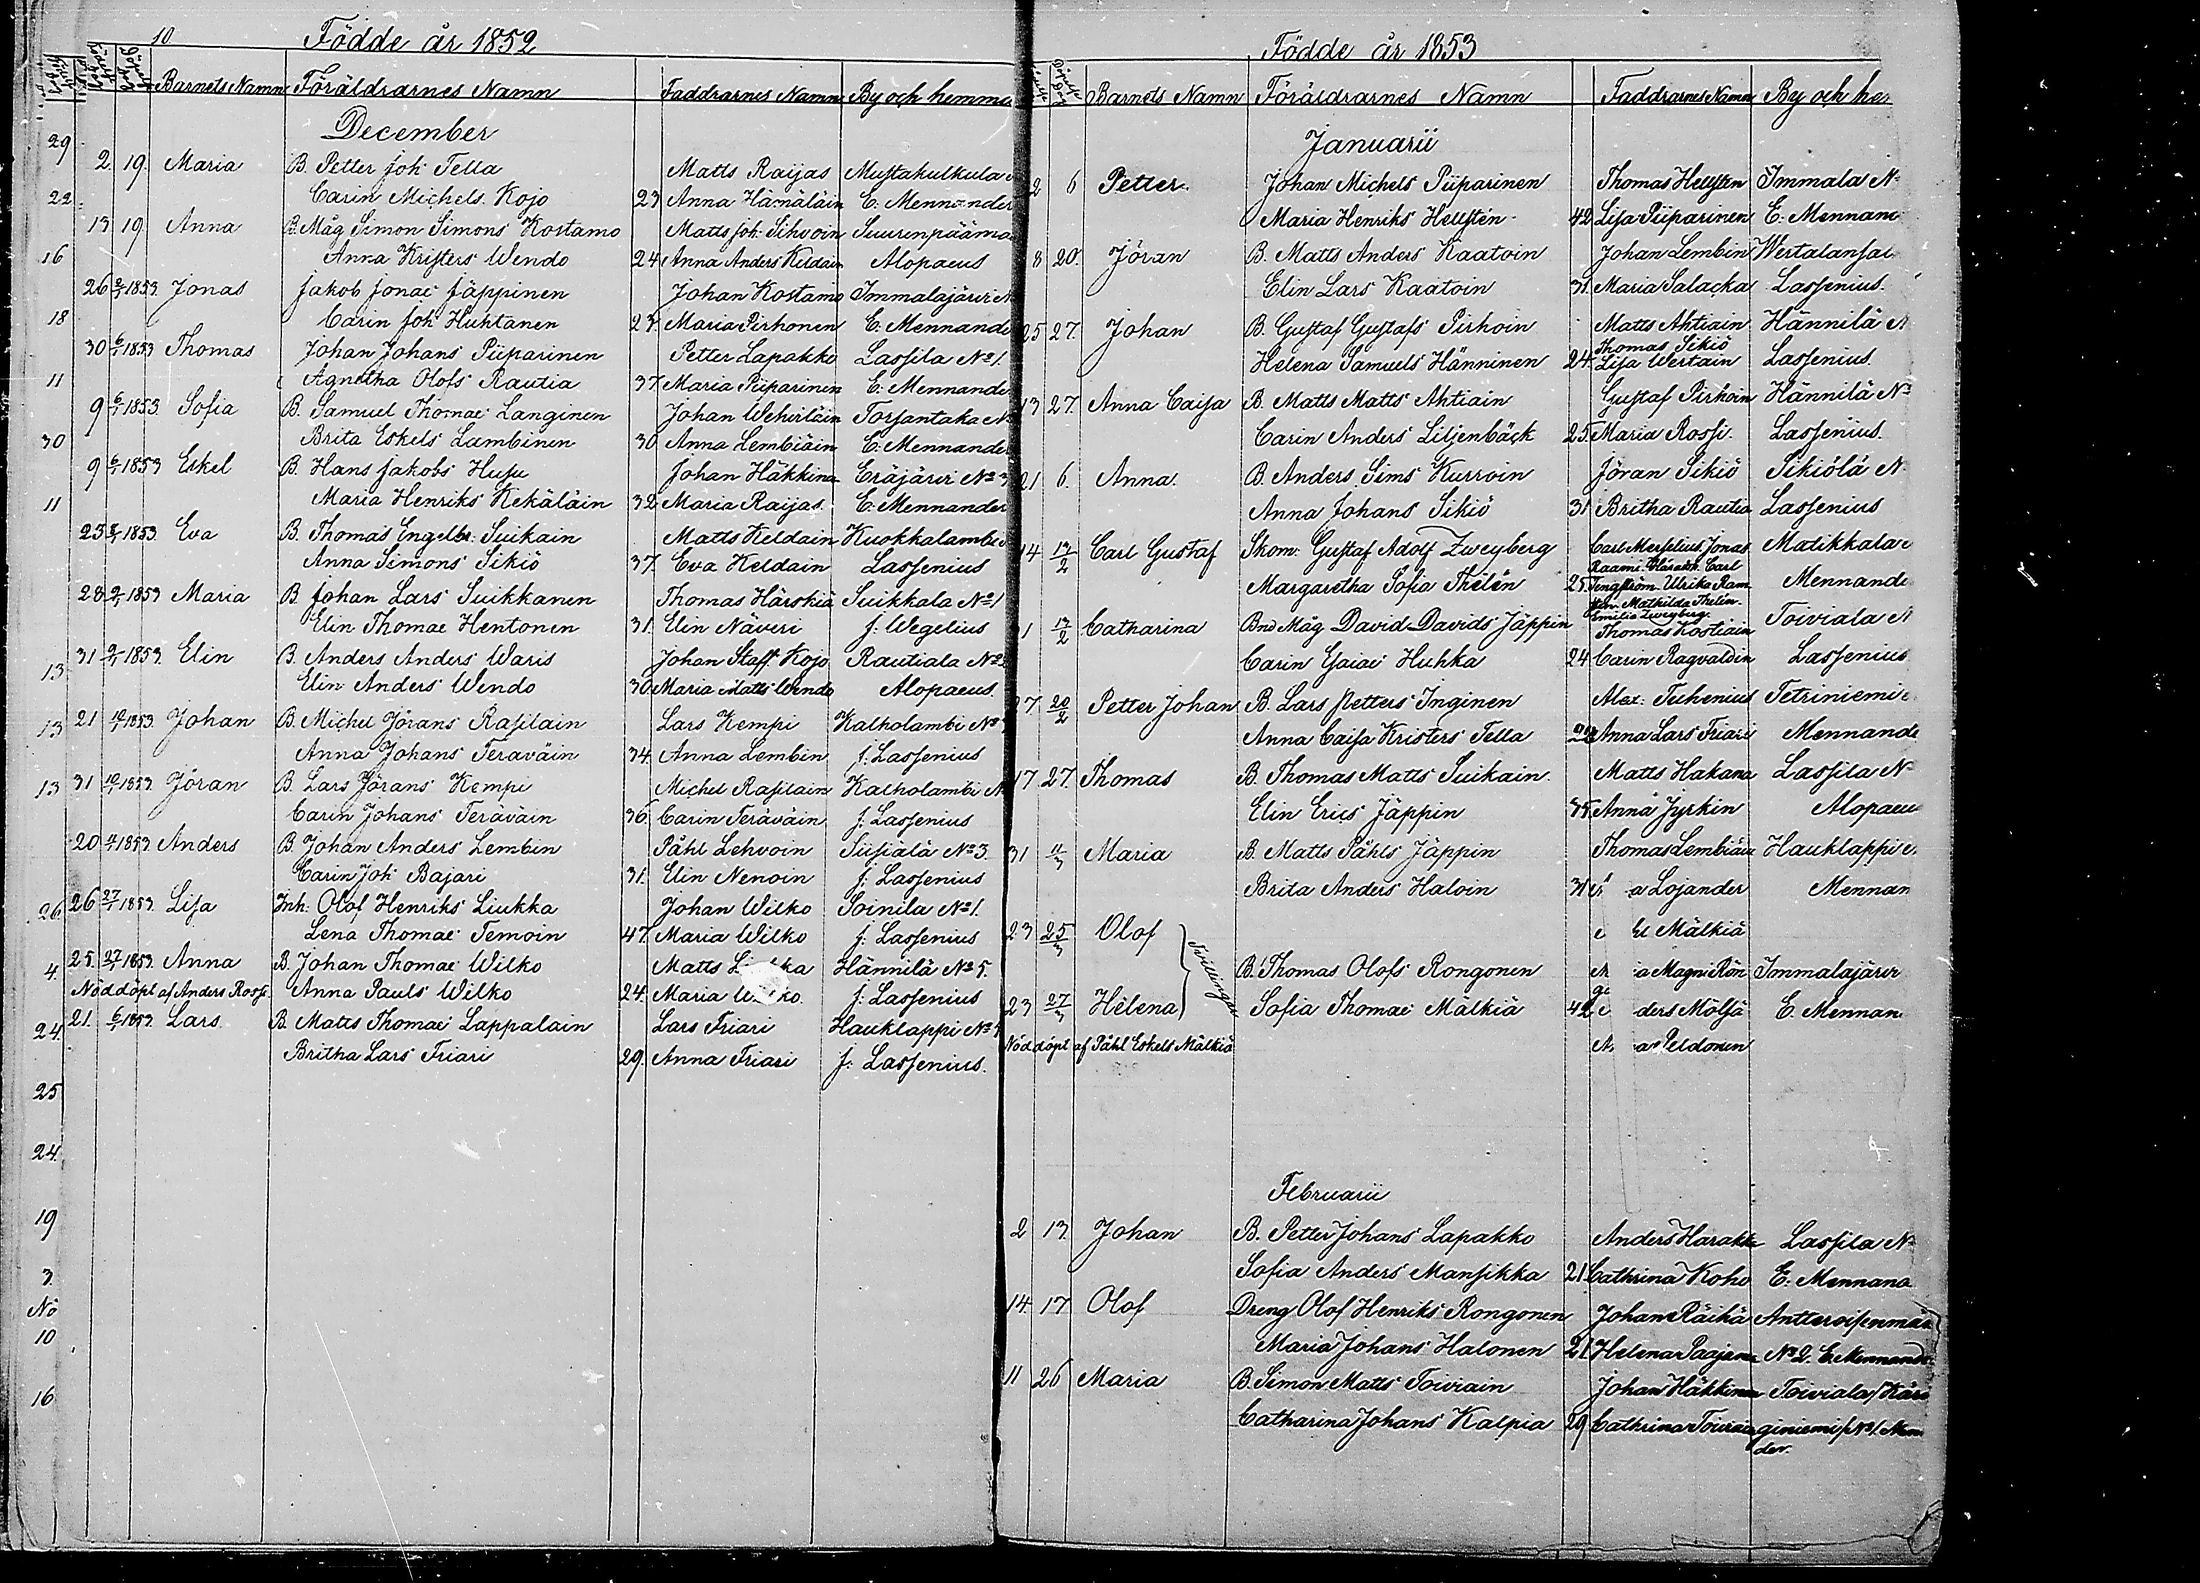 10 Födde år 1852
Barnets Namn Föräldrarnes Namn Faddrarnes Namn By och hemma
December
2. 19. Maria B. Petter Joh: Tella Matts Raijas Mustakulkula
Carin Michels Kojo 23 Anna Hämäläin E: Mennander
13 19 Anna B. Måg Simon Simons Kostamo Matts Joh: Sihvoin Suurenpäämaa
Anna Kristers Wendo 24 Anna Anders Keldain Alopaeus
26 2/1 1853. Jonas Jakob Jonae Jäppinen Johan Kostamo Immalajärvi N
Carin Joh: Huhtanen 23. Maria Pirhonen E. Mennande
30 6/1 1853 Thomas Johan Johans Piiparinen Petter Lapakko Lassila No 1.
Agnetha Olofs Rautia 37. Maria Piiparinen E: Mennande
9 6/1 1853. Sofia B. Samuel Thomae Langinen Johan Wehviläin Torsantaka No
Brita Eskels Lambinen 30 Anna Lembiäin E. Mennander
9 6/1 1853 Eskel B. Hans Jakobs Husu Johan Häkkinen Eräjärvi No 3
Maria Henriks Kekäläin 32 Maria Raijas E: Mennander
23 1853. Eva B. Thomas Engelbr: Suikain Matts Keldain Kuokkalambi
Anna Simons Sikiö 37. Eva Keldain Lassenius
28 9/1 1853 Maria B. Johan Lars Suikkanen Thomas Härskiä Suikkala No 1
Elin Thomae Hentonen 31. Elin Näveri f: Wegelius
31 9/1 1853. Elin B. Anders Anders Waris Johan Staff: Kojo Rautiala No
Elin Anders Wendo 30. Maria Matts Wendo Alopaeus.
21 10/1 1853 Johan B. Michel Jörans Rasilain Lars Kempi Kalholambi No
Anna Johans Teräväin 34. Anna Lembin f: Lassenius
31 10/1 1853. Jöran B. Lars Jörans Kempi Michel Rasilain Kalholambi N
Carin Johans Teräväin 36 Carin Teräväin f: Lassenius
20 1853 Anders B. Johan Anders Lembin Påhl Lehvoin Siisiälä No 3.
Carin Joh: Bajari 31. Elin Nenoin f: Lassenius
26 27/1 1853. Lisa Inh: Olof Henriks Liukka Johan Wilko Soinila No 1.
Lena Thomae Temoin 47. Maria Wilko f: Lassenius
25. 27/1 1853. Anna B. Johan Thomae Wilko Matts Hännilä No 5.
Nöddöpt af Anders Rossi. Anna Pauls Wilko 24. Maria f: Lassenius
21. 6/ 1853. Lars B. Matts Thomae Lappalain Lars Friari Hauklappi No
Britha Lars Friari 29. Anna Friari f: Lassenius.
29
22.
16
18
11
30
11
13
13
13
26
4.
24.
25
24.
19
3.
Nö
10
16
Födde år 1853
Barnets Namn Föräldrarnes Namn Faddrarnes Namn By och he
Januarii
2 6 Petter Johan Michels Piiparinen Thomas Hellsten Immala N
Maria Henriks Hellstén 42 Lisa Piiparinen E: Mennan
8 20. Jöran B. Matts Anders Kaatoin Johan Lembin
Elin Lars Kaatoin 31. Maria Salacka Lassenius.
25 27. Johan B. Gustaf Gustafs Pirhoin Matts Ahtiain Hännilä N
Thomas Sikiö
Helena Samuels Hänninen 24. Lisa Wertain Lassenius.
13 27. Anna Caisa B. Matts Matts Ahtiain Gustaf Pirhoin Hännilä No
Carin Anders Liljenbäck 25 Maria Rossi. Lassenius.
21 6. Anna. B. Anders Sims Kurvoin Jöran Sikiö Sikiölä N
Anna Johans Sikiö 31 Britha Rautia Lassenius
14 13/2 Carl Gustaf Skom: Gustaf Adolf Zweyberg Carl Merselius, Jonas Matikkala
Raami. Carl
Margaretha Sofia Thélén 25 Tengström. Ulrika Ram Mennande
Mathilda Thelén.
Emilia Zweyberg.
1 13/2 Catharina Bnd Måg David Davids Jäppin Thomas Kostiain Toiviala N
Carin Esaiae Huhka 24 Carin Ragvaldin Lassenius
7. 20/2 Petter Johan B. Lars Petters Inginen Alex: Tuhenius Tetriniemi
Anna Caisa Kristers Tella Anna Lars Friari Mennande
17 27. Thomas B. Thomas Matts Suikain. Matts Hakana Lassila No
Elin Erics Jäppin 35. Anna Jyrkin Alopaeu
31 11/3 Maria B. Matts Påhls Jäppin Thomas Lembiäin Hauklappi
Brita Anders Haloin 31 a Lojander Mennan
23 25/3 Olof Mälkiä
Tvillingar B. Thomas Olofs Rongonen a Magni Rön Immalajärvi
23 27/3 Helena Sofia Thomae Mälkiä 42 ders Mölsä E. Mennan
Nöddöpt af Påhl Eskels Mälkiä Peldonen
Februarii
2 13. Johan B. Petter Johans Lapakko Anders Harakka Lassila No
Sofia Anders Mansikka 21. Cathrina Koho E: Mennana
14 17 Olof Dreng Olof Henriks Rongonen Johan Räihä
Maria Johans Halonen 21 Helena Paajanen No 2. E. Mennande
11 26 Maria B. Simon Matts Toiviain Johan Häkkinen Toiviala/Kär
Catharina Johans Kalpia 29 Cathrina Toiviain giniemi/No 1. Men
der.